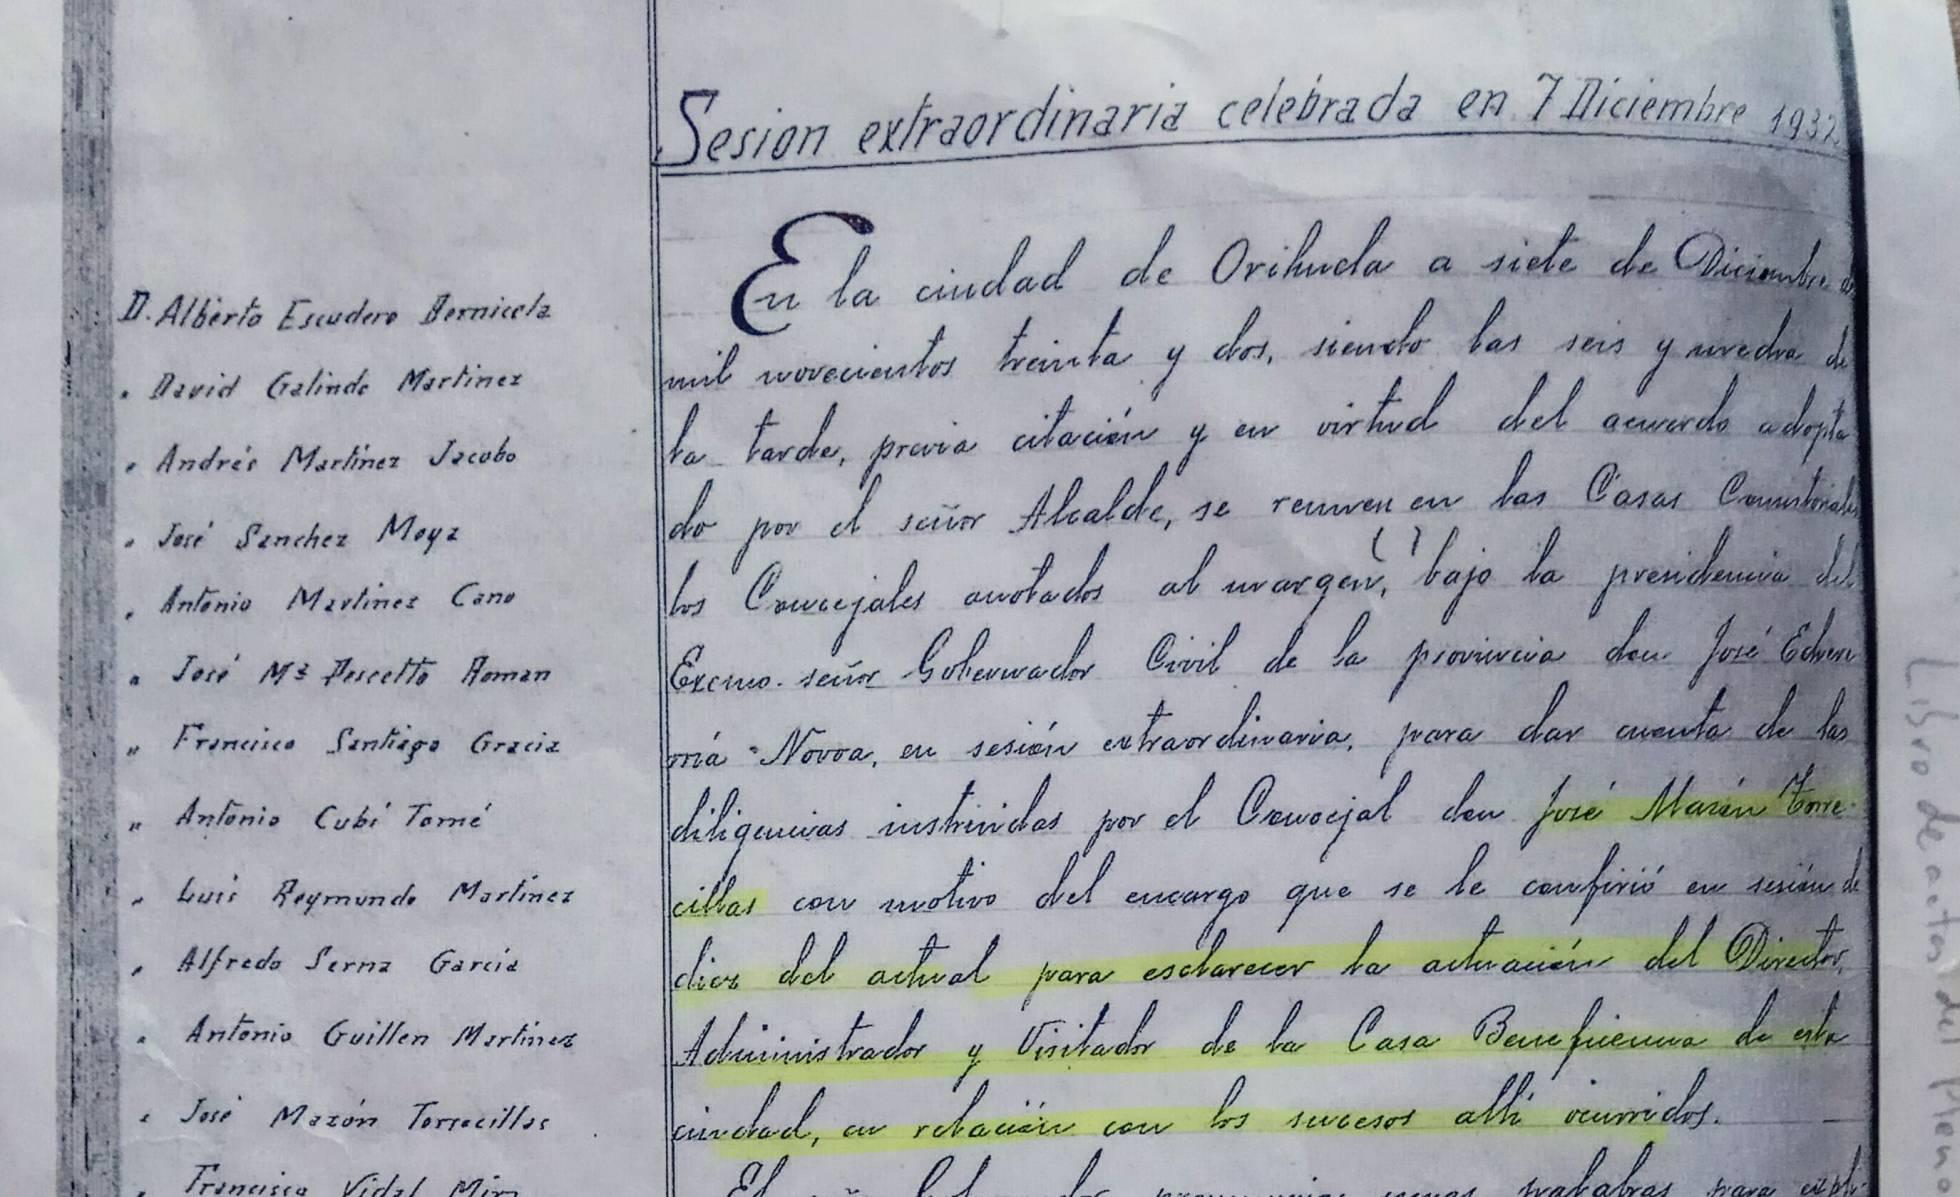 Sesion extraordinaria celebrada en 7 Diciembre 1932
D. Alberto Escudero Bernicola
" David Galindo Martinez
" Andrés Martínez Jacobo
" José Sanchez Moya
" Antonio Martinez Cano
" José Mª Pescetto Roman
" Francisco Santiago Gracia
" Antonio Cubí Tomé
" Luis Reymundo Martínez
" Alfredo Serna García
" Antonio Guillen Martínez
" José Mazón Torrecillas
" Francisco Vidal
En la ciudad de Orihuela a siete de Diciembre de
mil novecientos treinta y dos, siendo las seis y media de
la tarde, previa citación y en virtud del acuerdo adopta
do por el señor Alcalde, se reunen en las Casas Consistoriales
los Concejales anotados al margen, ( ) bajo la presidencia del
Excmo. señor Gobernador Civil de la provincia don José Echeve
rria Novoa, en sesión extraordinaria, para dar cuenta de las
diligencias instruidas por el Concejal don José Mazón Torre-
cillas con motivo del encargo que se le confirió en sesión de
diez del actual para esclarecer la actuación del Director,
Administrador y Visitador de la Casa Beneficencia de esta
ciudad, en relación con los sucesos allí ocurridos.
El señor Gobernador pronuncia unas palabras para
Libro de actas del Pleno